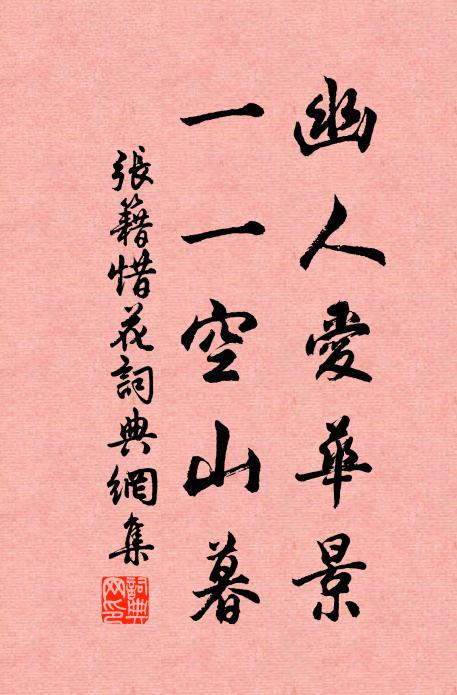 幽人愛華景
一一空山暮
張籍惜花詞典網集
詞典网印